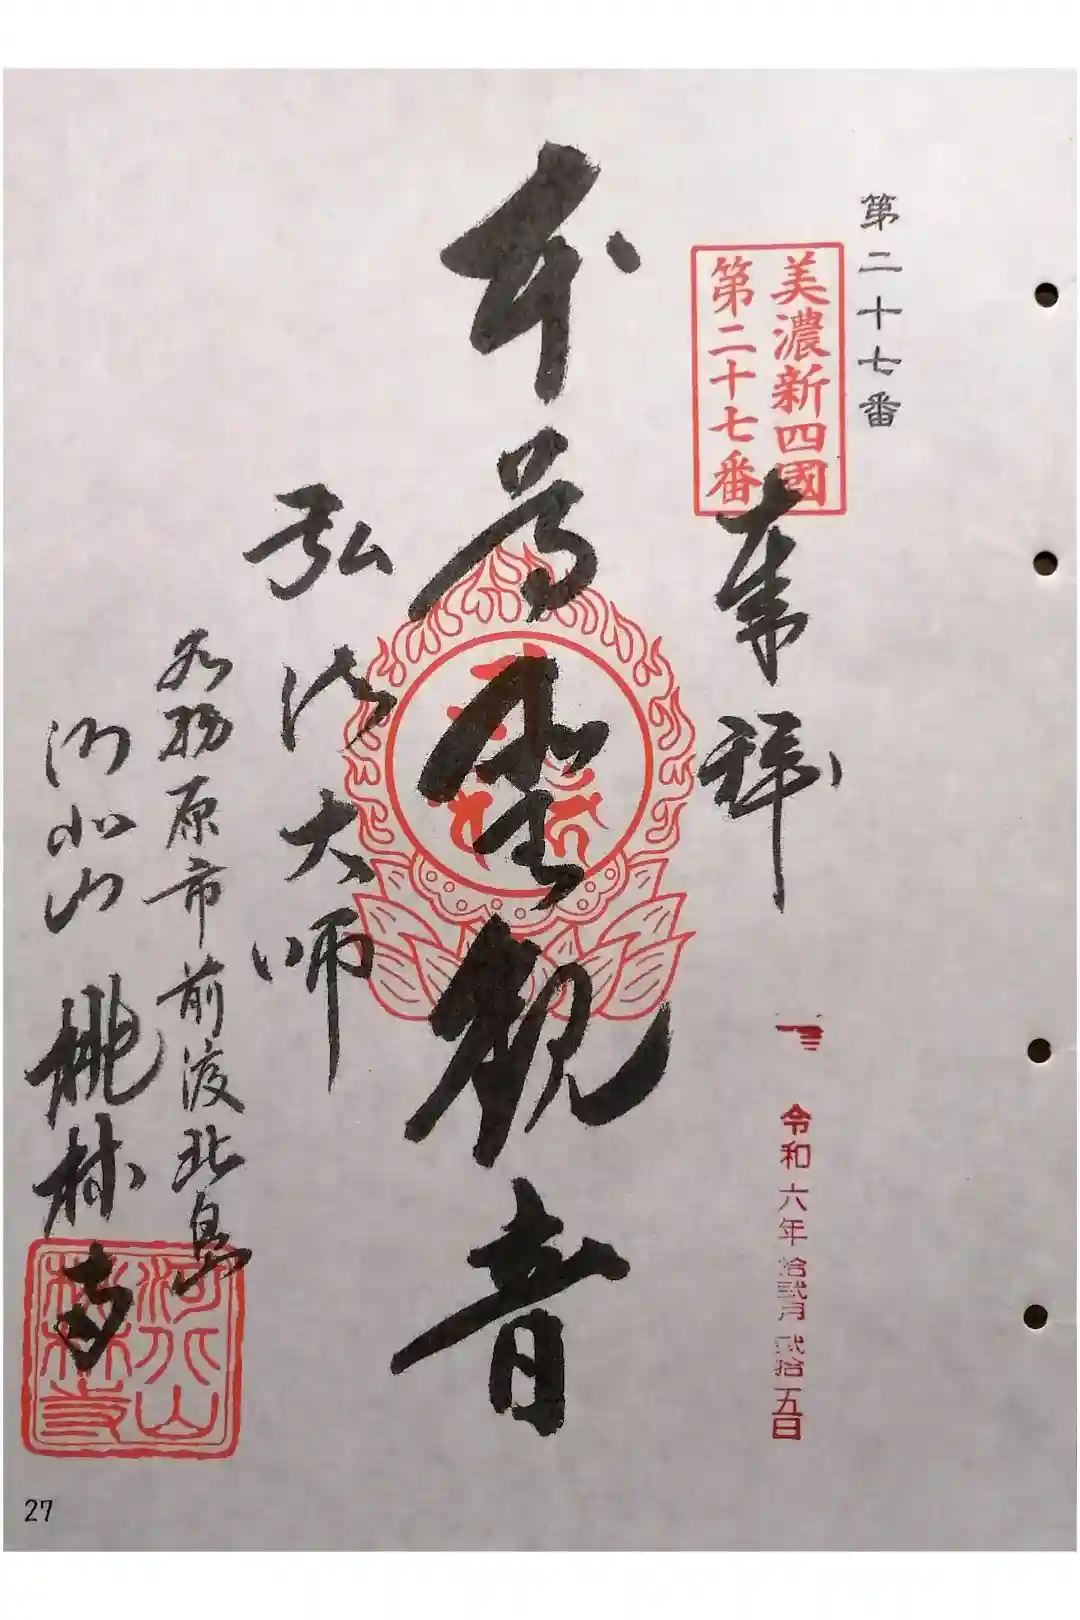 第二十七番
美濃新四國
第二十七番
奉拝
令和六年拾弐月弐拾五日
本尊聖観音
弘法大師
各務原市前渡北島
河北山 桃林寺
河北山
桃林寺
27